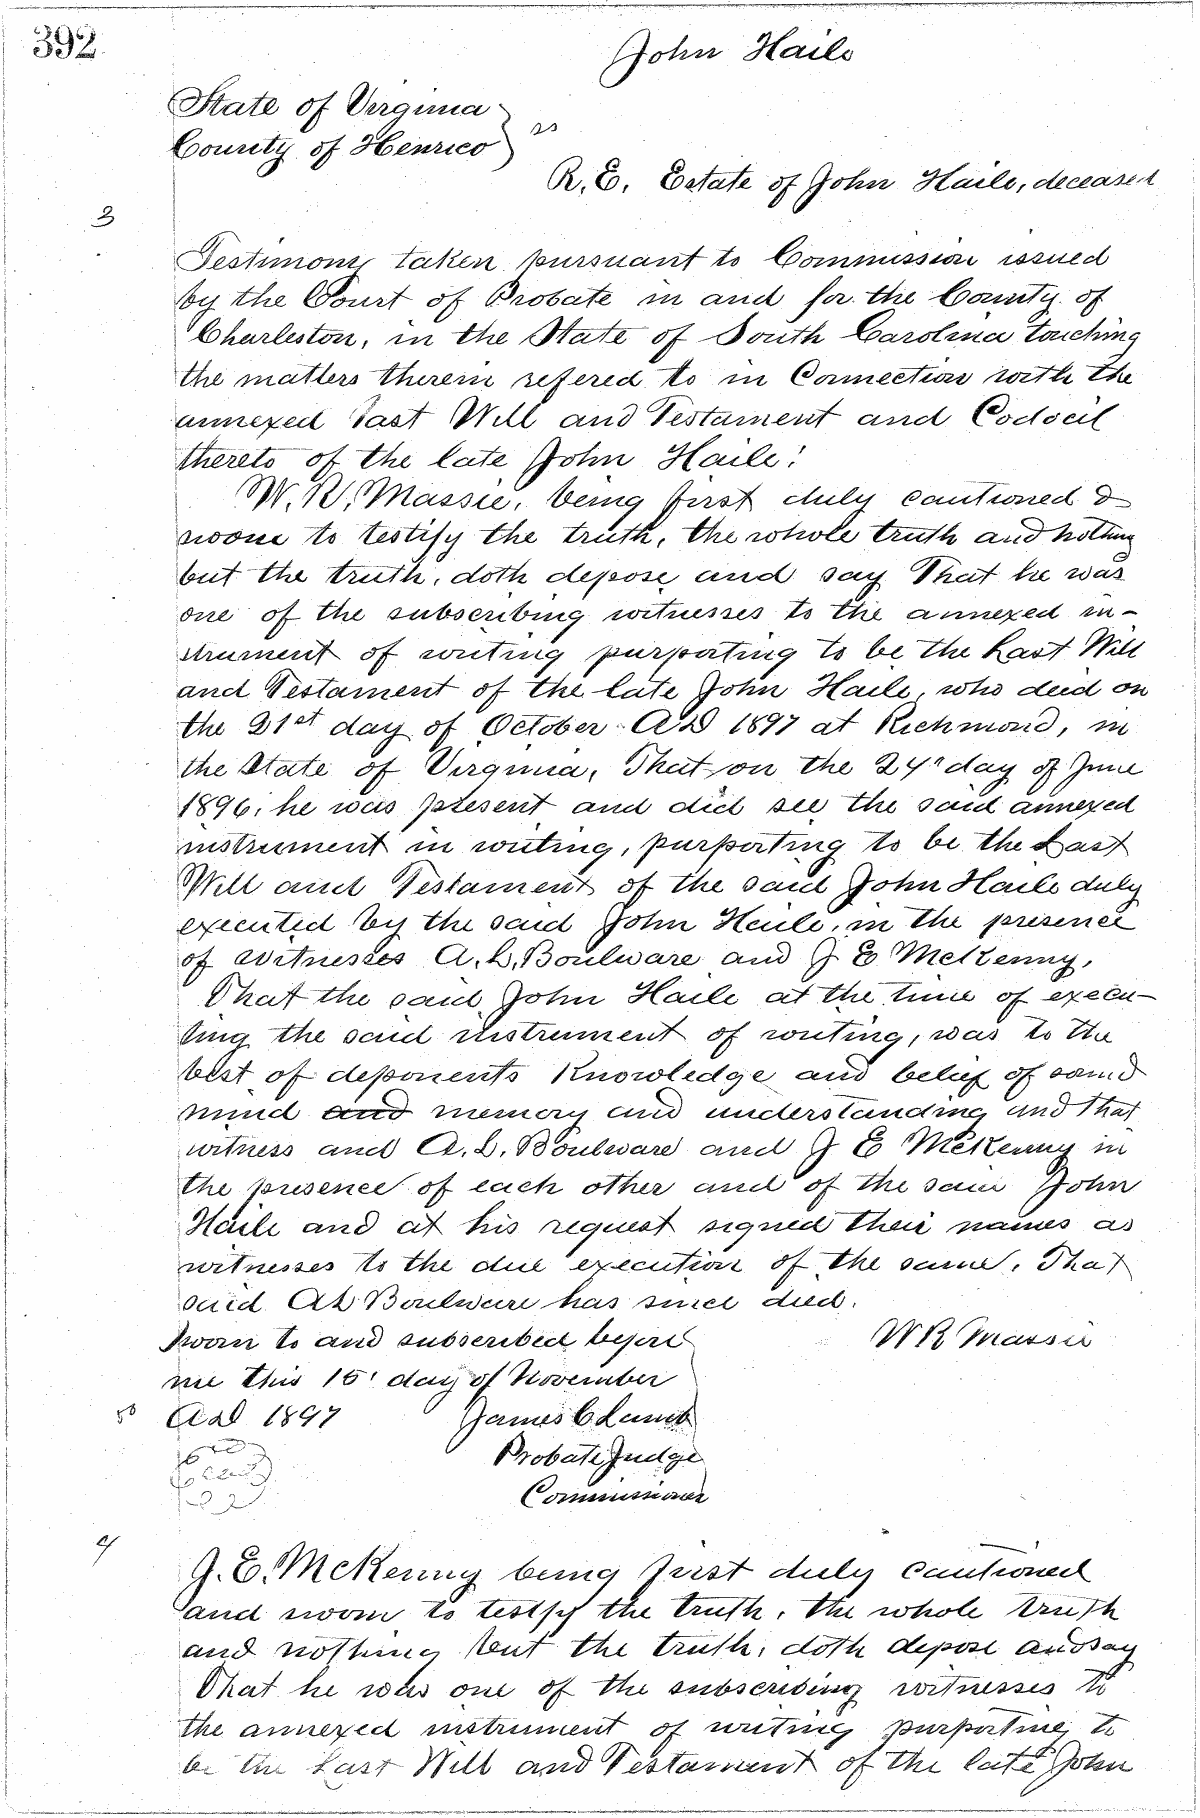 392
John Haile
State of Virginia
County of Henrico } ss
R. E. Estate of John Haile, deceased
3
Testimony taken pursuant to Commission issued
by the Court of Probate in and for the County of
Charleston, in the State of South Carolina touching
the matters therein refered to in Connection with the
annexed Last Will and Testament and Codocil
thereto of the late John Haile:
W. R. Massie, being first duly cautioned &
sworn to testify the truth, the whole truth and nothing
but the truth, doth depose and say That he was
one of the subscribing witnesses to the annexed in-
strument of writing purporting to be the Last Will
and Testament of the late John Haile, who died on
the 21st day of October AD 1897 at Richmond, in
the State of Virginia, That on the 24" day of June
1896, he was present and did see the said annexed
instrument in writing, purporting to be the Last
Will and Testament of the said John Haile duly
executed by the said John Haile, in the presence
of witnesses A. L. Boulware and J E McKenny,
That the said John Haile at the time of execu-
ting the said instrument of writing, was to the
best of deponents Knowledge and belief of sound
mind and memory and understanding and that
witness and A. L. Boulware and J E McKenny in
the presence of each other and of the said John
Haile and at his request signed their names as
witnesses to the due execution of the same. That
said AL Boulware has since died.
Sworn to and subscribed before
W R Massie
me this 15' day of November
AD 1897
James C Lamb
Probate Judge
Commissioner
4
J. E. McKenny being first duly cautioned
and sworn to testify the truth, the whole truth
and nothing but the truth, doth depose and say
That he was one of the subscribing witnesses to
the annexed instrument of writing purporting to
be the Last Will and Testament of the late John